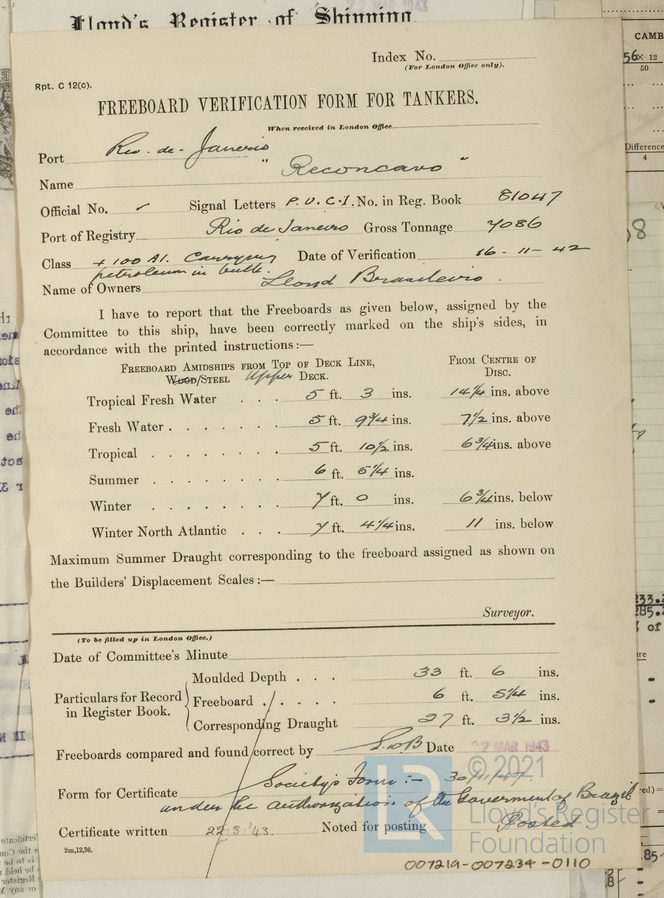 Lloyd's Register of Shipping
Index No.
(For London Office only).
Rpt. C 12(c).
FREEBOARD VERIFICATION FORM FOR TANKERS.
When received in London Office
Port Rio-de-Janeiro
Name "Reconcavo"
Official No. ✓ Signal Letters P.U.C.I. No. in Reg. Book 81047
Port of Registry Rio de Janeiro Gross Tonnage 7086
Class + 100 A1. Carrying Date of Verification 16-11-42
petroleum in bulk.
Name of Owners Lloyd Brasileiro.
I have to report that the Freeboards as given below, assigned by the
Committee to this ship, have been correctly marked on the ship's sides, in
accordance with the printed instructions:—
FREEBOARD AMIDSHIPS FROM TOP OF DECK LINE, FROM CENTRE OF
WOOD/STEEL Upper DECK. DISC.
Tropical Fresh Water . . . 5 ft. 3 ins. 14¼ ins. above
Fresh Water . . . . . . . 5 ft. 9¾ ins. 7½ ins. above
Tropical . . . . . . . . 5 ft. 10½ ins. 6¾ ins. above
Summer . . . . . . . . 6 ft. 5¼ ins.
Winter . . . . . . . . 7 ft. 0 ins. 6¾ ins. below
Winter North Atlantic . . . 7 ft. 4¼ ins. 11 ins. below
Maximum Summer Draught corresponding to the freeboard assigned as shown on
the Builders' Displacement Scales :—
Surveyor.
(To be filled up in London Office.)
Date of Committee's Minute
Moulded Depth . . . 33 ft. 6 ins.
Particulars for Record in Register Book.
Freeboard . . . . . 6 ft. 5¼ ins.
Corresponding Draught 27 ft. 3½ ins.
Freeboards compared and found correct by Date 22 MAR 1943
Form for Certificate Society's Form :- 30/11/47
under the authorization of the Government of Brazil
Certificate written 22.3.43. Noted for posting Posted
2m,12,36.
007219-007234-0110
© 2021
LR
Lloyd's Register
Foundation
CAMB
56 x 12
50
Difference
4